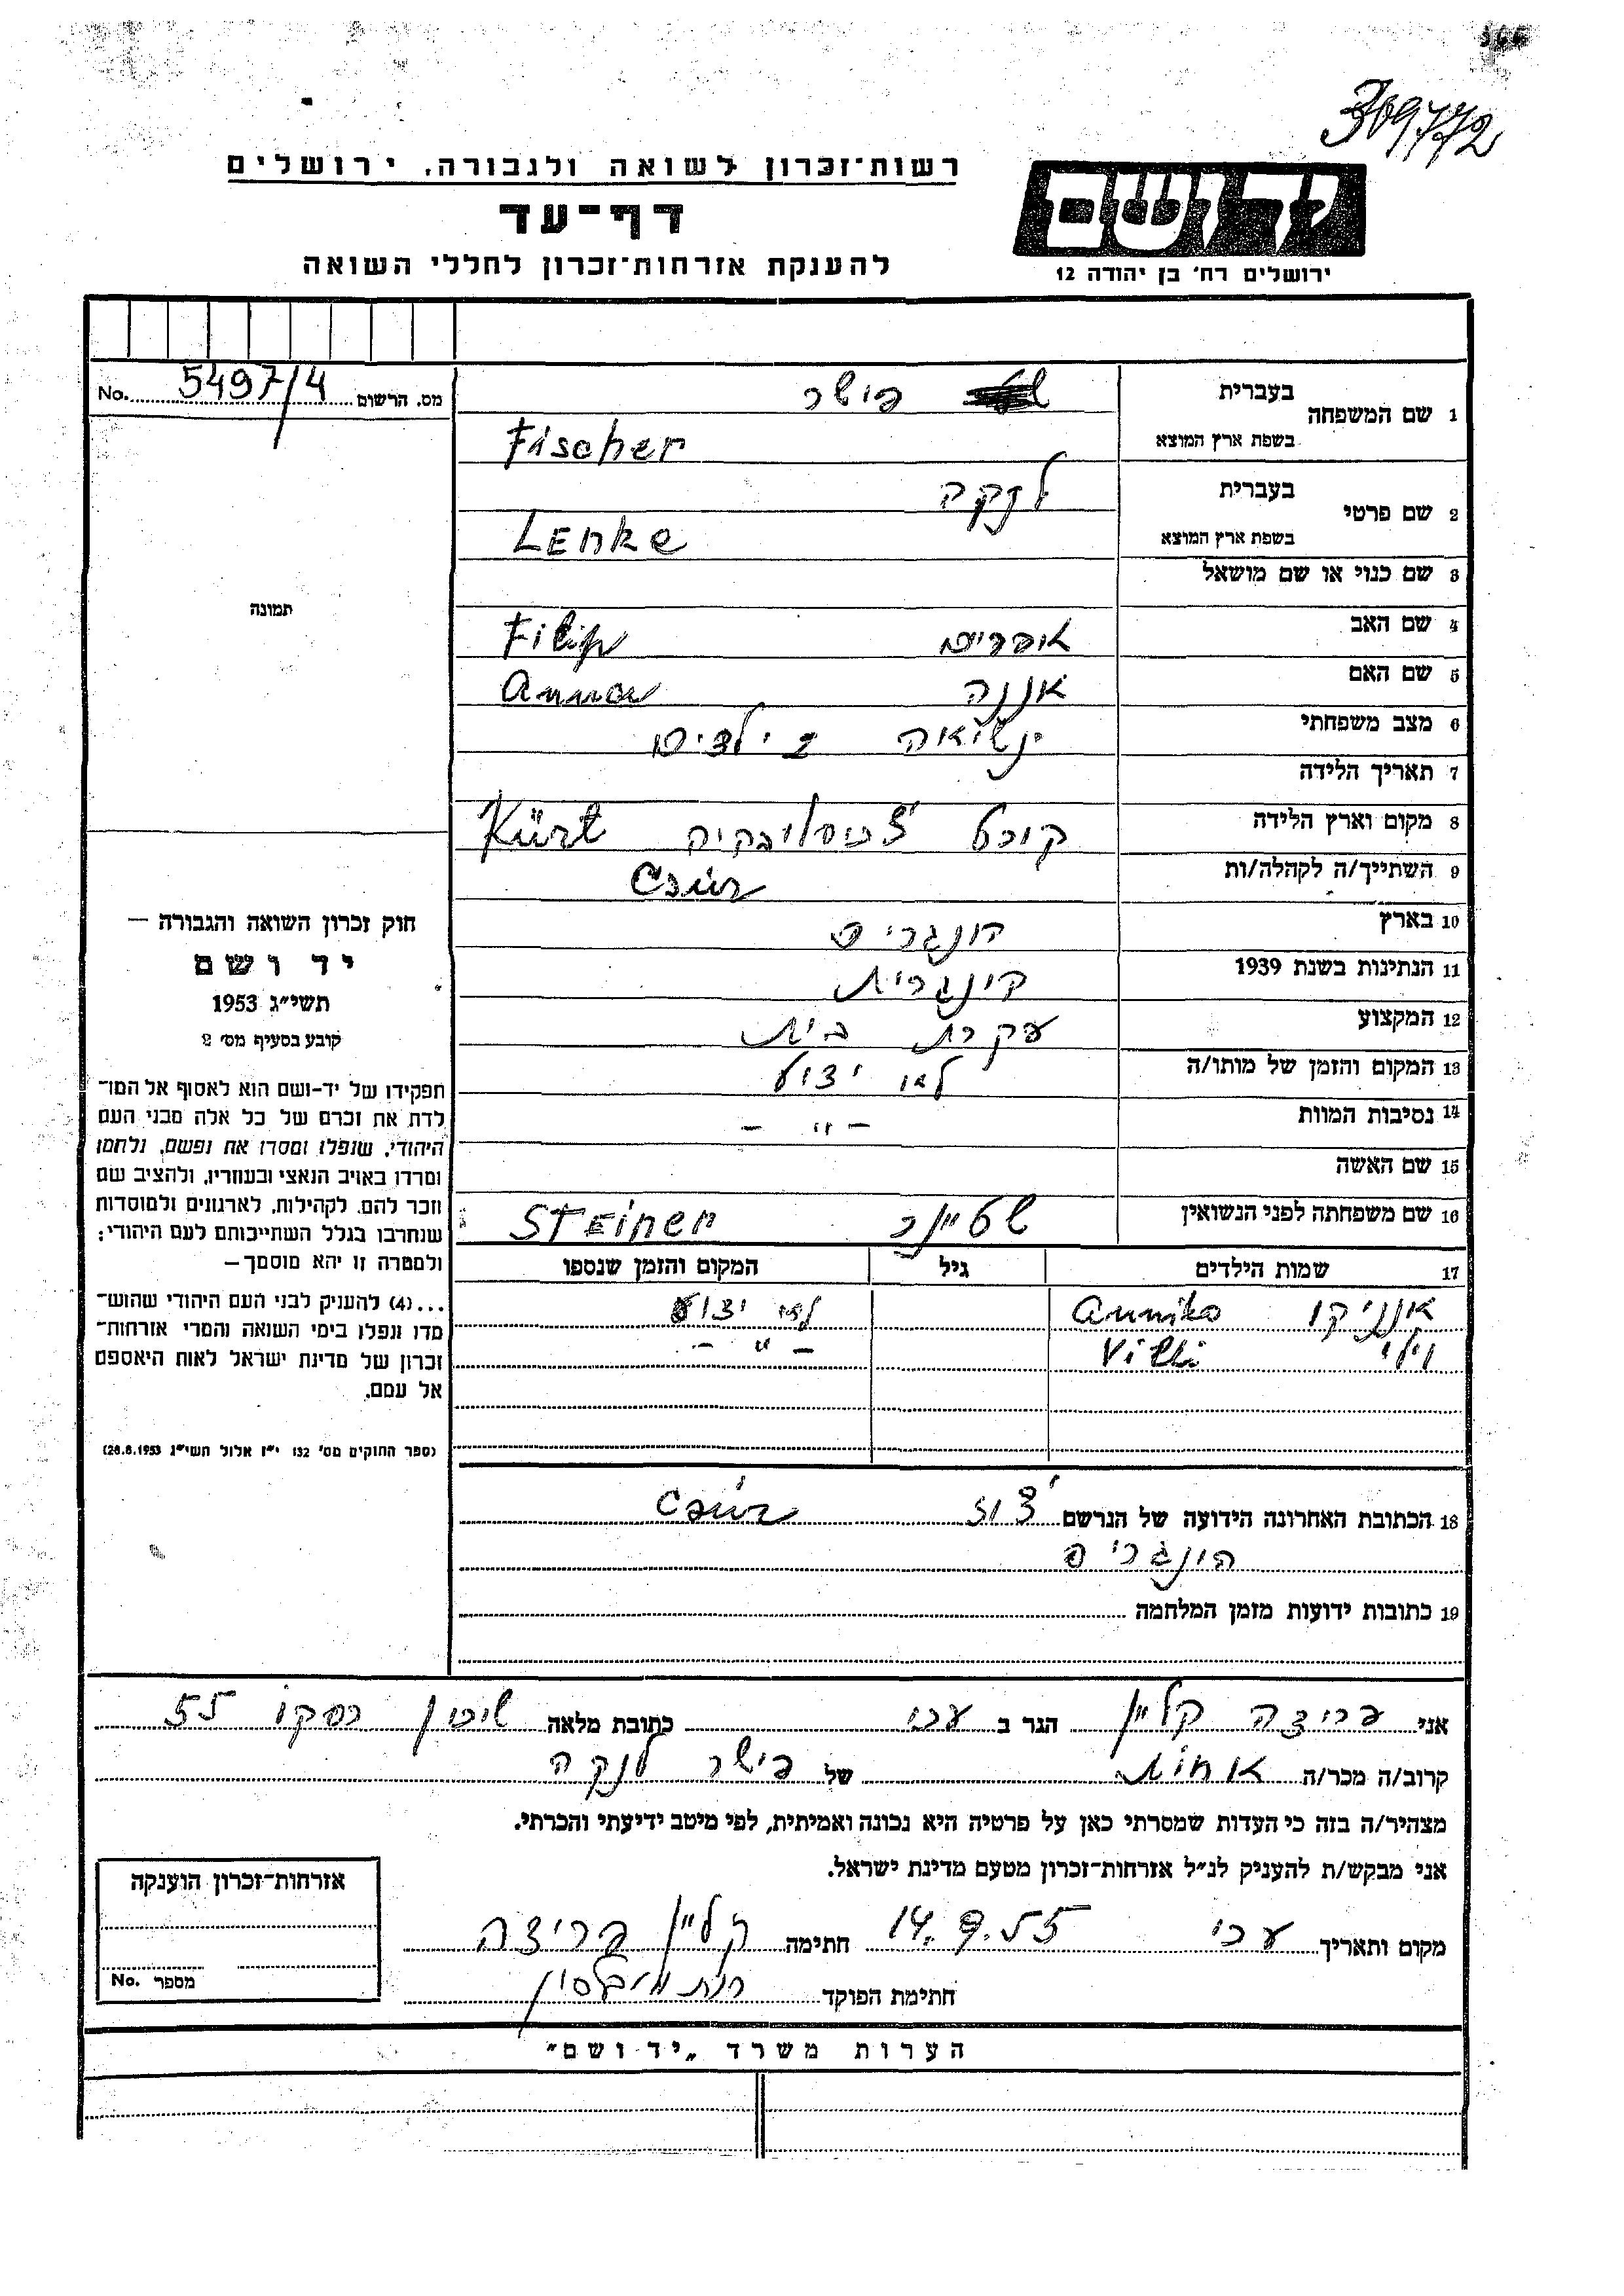 309772
רשות־זכרון לשואה ולגבורה, ירושלים
דף־עד
להענקת אזרחות־זכרון לחללי השואה
ידושם
ירושלים רח' בן יהודה 12
מס. הרשום 5497/4 No.
1 שם המשפחה
בעברית פישר
בשפת ארץ המוצא Fischer
2 שם פרטי
בעברית לנקה
בשפת ארץ המוצא Lenke
3 שם כנוי או שם מושאל
4 שם האב אברהם Filip
5 שם האם אננה Anna
6 מצב משפחתי נשואה 2 ילדים
7 תאריך הלידה
8 מקום וארץ הלידה קורט צ'כוסלובקיה Kürt
9 השתייך/ה לקהלה/ות Csúz
10 בארץ הונגריה
11 הנתינות בשנת 1939 הונגרית
12 המקצוע עקרת בית
13 המקום והזמן של מותו/ה לא ידוע
14 נסיבות המוות – " –
15 שם האשה
16 שם משפחתה לפני הנשואין שטיינר Steiner
17 שמות הילדים גיל המקום והזמן שנספו
אניקו Annika לא ידוע
וילי Villi – " –
18 הכתובת האחרונה הידועה של הנרשם צ'וז Csúz
הונגריה
19 כתובות ידועות מזמן המלחמה
תמונה
חוק זכרון השואה והגבורה —
יד ושם
תשי״ג 1953
קובע בסעיף מס׳ 2
תפקידו של יד-ושם הוא לאסוף אל המו־
לדת את זכרם של כל אלה מבני העם
היהודי, שנפלו ומסרו את נפשם, נלחמו
ומרדו באויב הנאצי ובעוזריו, ולהציב שם
וזכר להם, לקהילות, לארגונים ולמוסדות
שנחרבו בגלל השתייכותם לעם היהודי;
ולמטרה זו יהא מוסמך—
...(4) להעניק לבני העם היהודי שהוש־
מדו ונפלו בימי השואה והמרי אזרחות־
זכרון של מדינת ישראל לאות היאספם
אל עמם.
(ספר החוקים מס׳ 132 י״ז אלול תשי״ג 28.8.1953)
אני פריצה קליין הגר ב עכו כתובת מלאה שיכון רסקו 55
קרוב/ה מכר/ה אחות של פישר לנקה
מצהיר/ה בזה כי העדות שמסרתי כאן על פרטיה היא נכונה ואמיתית, לפי מיטב ידיעתי והכרתי.
אני מבקש/ת להעניק לנ״ל אזרחות־זכרון מטעם מדינת ישראל.
מקום ותאריך עכו 14.9.55 חתימה קליין פריצה
חתימת הפוקד
אזרחות־זכרון הוענקה
מספר No.
הערות משרד „יד ושם״